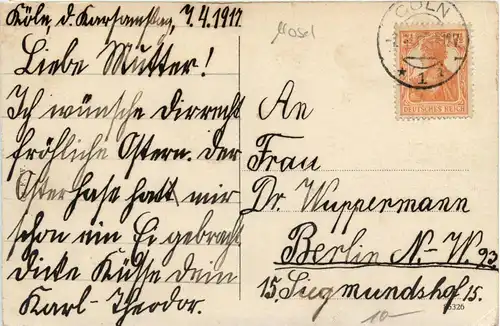 Köln, d. Karsamstag, 7.4.1917
Liebe Mutter!
Ich wünsche dir recht
fröhliche Ostern. Der
Osterhase hatt mir
schon ein Ei gebracht
Dicke Küsse dein
Karl-Theodor.
Mosel
CÖLN
* 1
DEUTSCHES REICH
An
Frau
Dr. Wuppermann
Berlin N.-W. 23
15, Siegmundshof 15.
10-